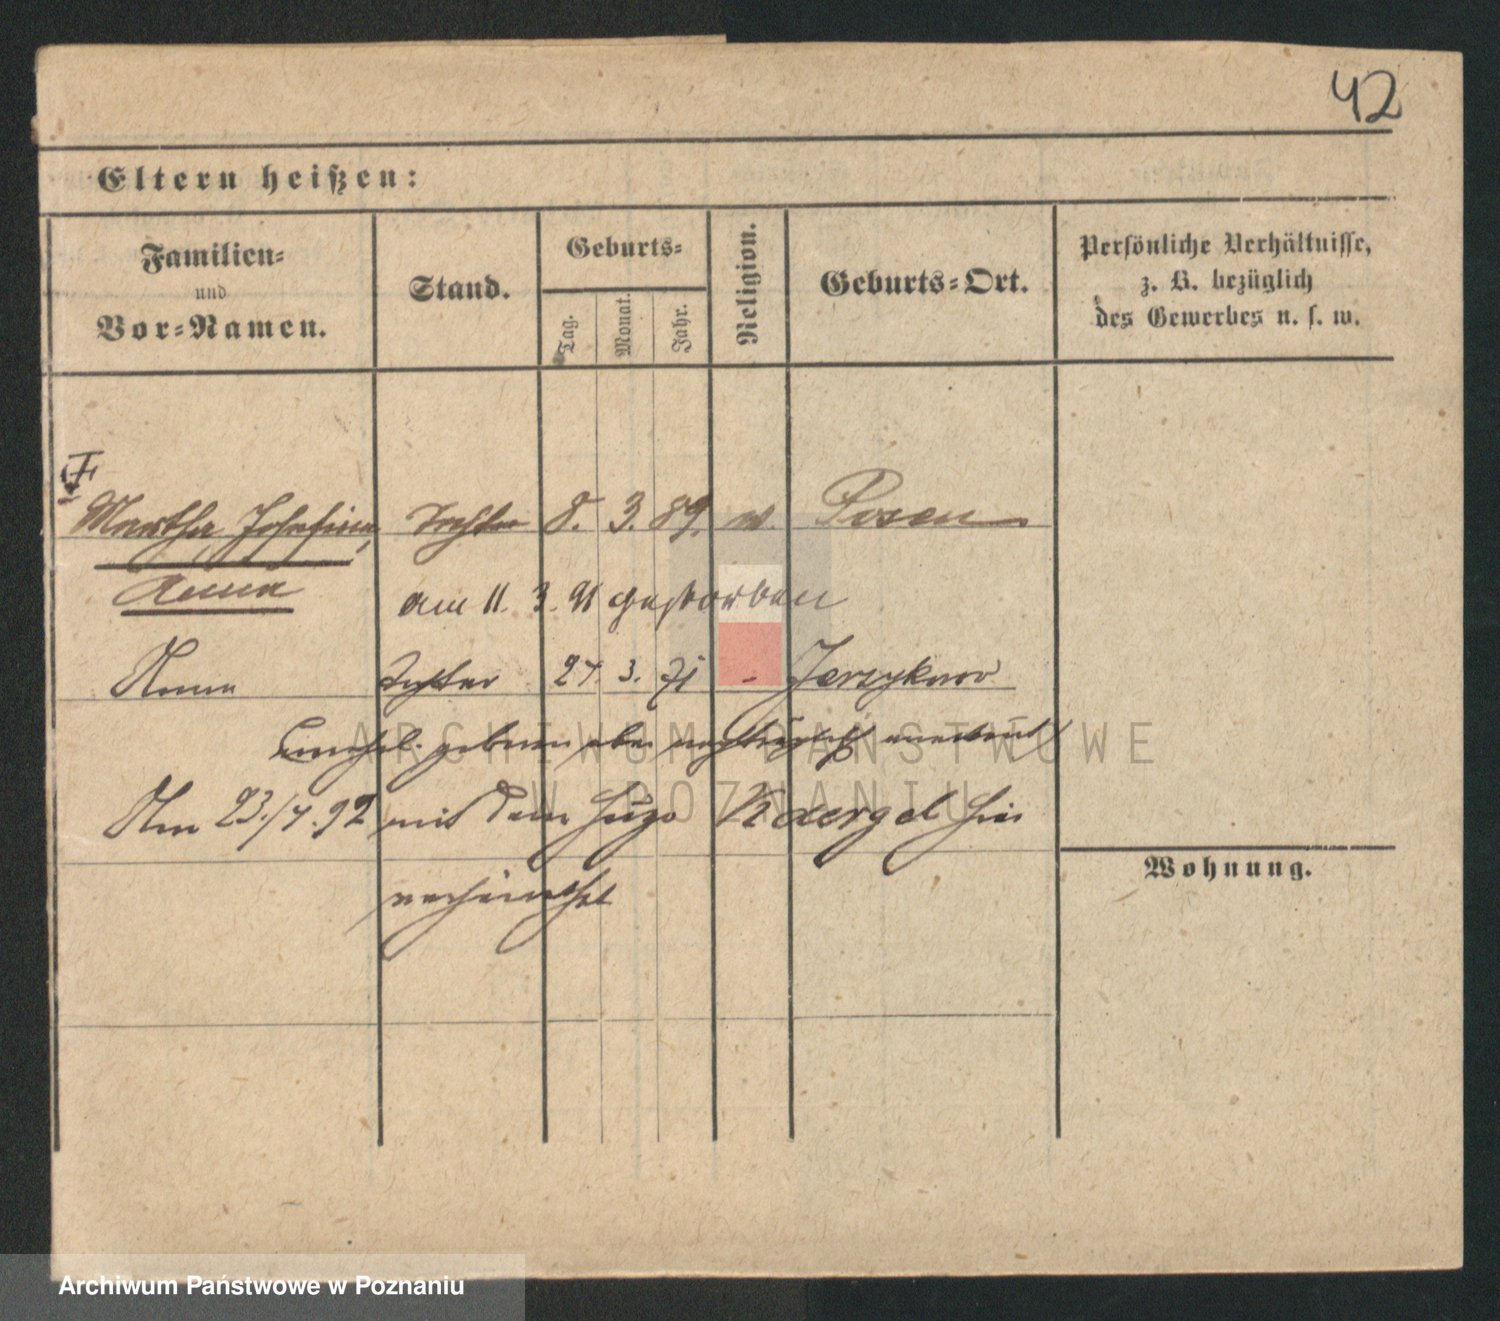 42
Eltern heißen:
Familien-
und
Vor-Namen.
Stand.
Geburts-
Tag.
Monat.
Jahr.
Religion.
Geburts-Ort.
Persönliche Verhältnisse,
z. B. bezüglich
des Gewerbes u. s. w.
Martha, Josefina, Tochter 8. 3. 89. Posen
Anna
am 11. 3. 91 gestorben
Anna Tochter 3. 71 - Jerzykowo
unehel. geboren aber nachträglich anerkannt
Am 23./4.92 mit dem Hugo Kaergel hier
verheirathet
Wohnung.
ARCHIWUM PAŃSTWOWE
W POZNANIU
Archiwum Państwowe w Poznaniu